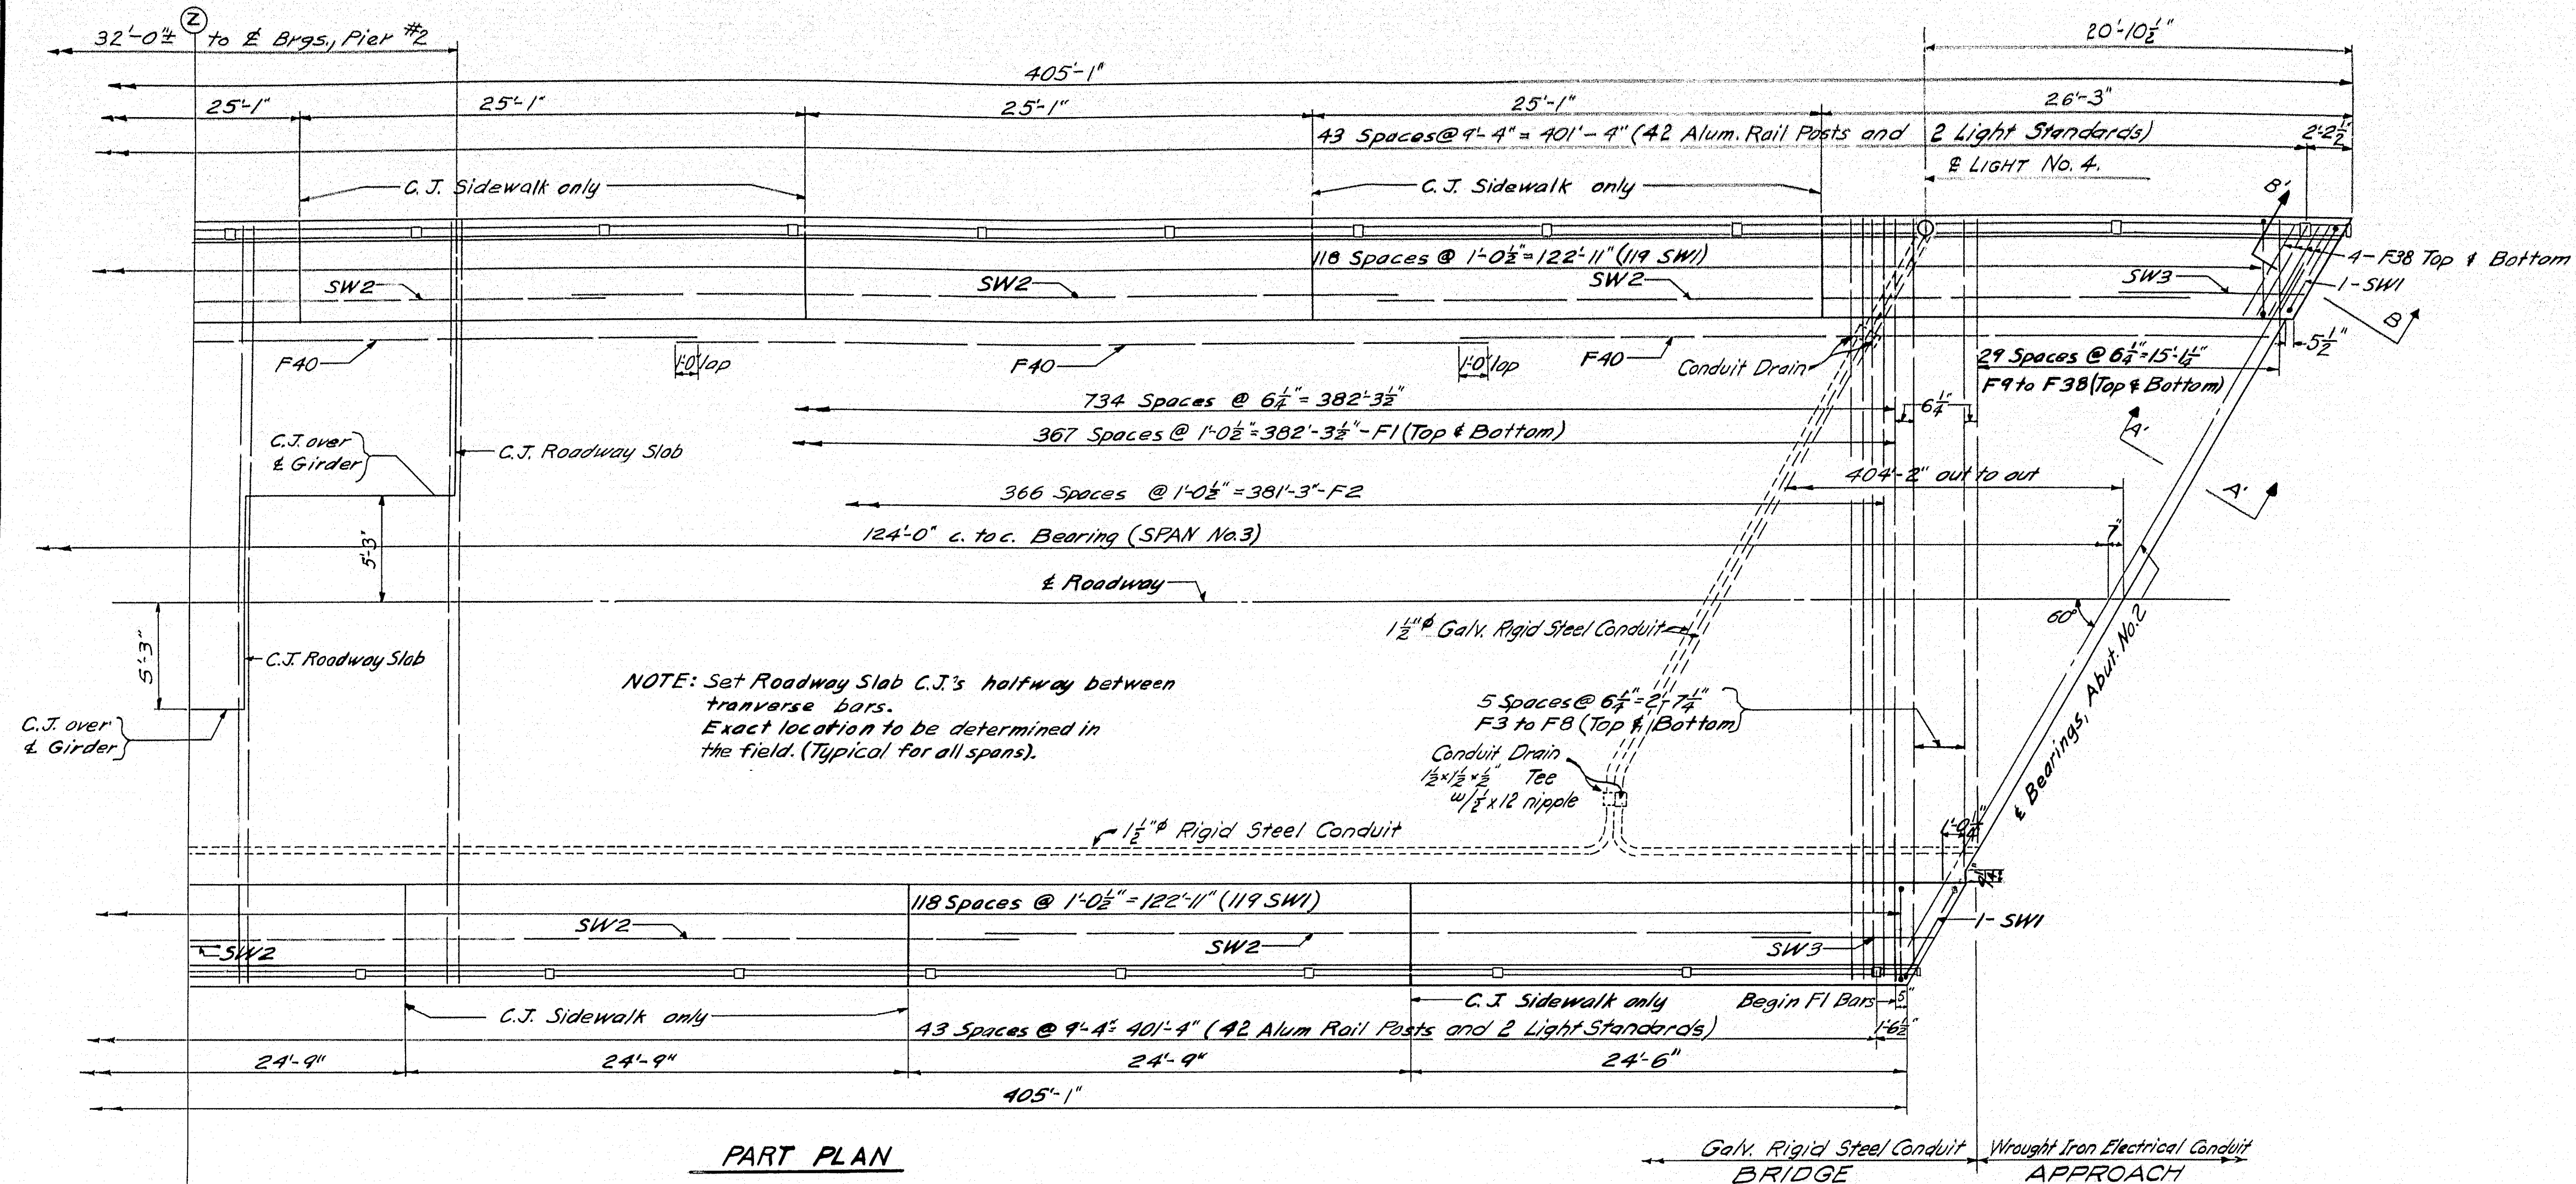 Z
32'-0"± to ℄ Brgs., Pier #2
20'-10½"
405'-1"
25'-1" 25'-1" 25'-1" 25'-1" 26'-3"
43 Spaces @ 9'-4" = 401'-4" (42 Alum. Rail Posts and 2 Light Standards)
2'-2½"
℄ LIGHT No. 4.
C.J. Sidewalk only
C.J. Sidewalk only
B'
118 Spaces @ 1'-0½"=122'-11" (119 SW1)
4-F38 Top & Bottom
SW2
SW2
SW2
SW3
1-SW1
B
F40
1'-0" lap
F40
1'-0" lap
F40
Conduit Drain
5½"
29 Spaces @ 6¼"=15'-1¼"
F9 to F38 (Top & Bottom)
734 Spaces @ 6¼" = 382'-3½"
6¼"
367 Spaces @ 1'-0½"=382'-3½"-F1 (Top & Bottom)
A'
C.J. over
℄ Girder
C.J. Roadway Slab
404'-2" out to out
366 Spaces @ 1'-0½"=381'-3"-F2
A'
5'-3"
124'-0" c. to c. Bearing (SPAN No.3)
7"
℄ Roadway
60°
5'-3"
1½"ϕ Galv. Rigid Steel Conduit
C.J. Roadway Slab
NOTE: Set Roadway Slab C.J.'s halfway between
tranverse bars.
Exact location to be determined in
the field. (Typical for all spans).
5 Spaces @ 6¼"=2'-7¼"
F3 to F8 (Top & Bottom)
C.J. over
℄ Girder
℄ Bearings, Abut. No.2
Conduit Drain
1½x1½x½" Tee
w/½x12 nipple
1½"ϕ Rigid Steel Conduit
1'-0¼"
118 Spaces @ 1'-0½"=122'-11" (119 SW1)
1-SW1
SW2
SW2
SW2
SW3
C.J. Sidewalk only
C.J. Sidewalk only
Begin F1 Bars
5"
43 Spaces @ 9'-4"= 401'-4" (42 Alum Rail Posts and 2 Light Standards)
1'-6½"
24'-9" 24'-9" 24'-9" 24'-6"
405'-1"
PART PLAN
Galv. Rigid Steel Conduit
Wrought Iron Electrical Conduit
BRIDGE
APPROACH